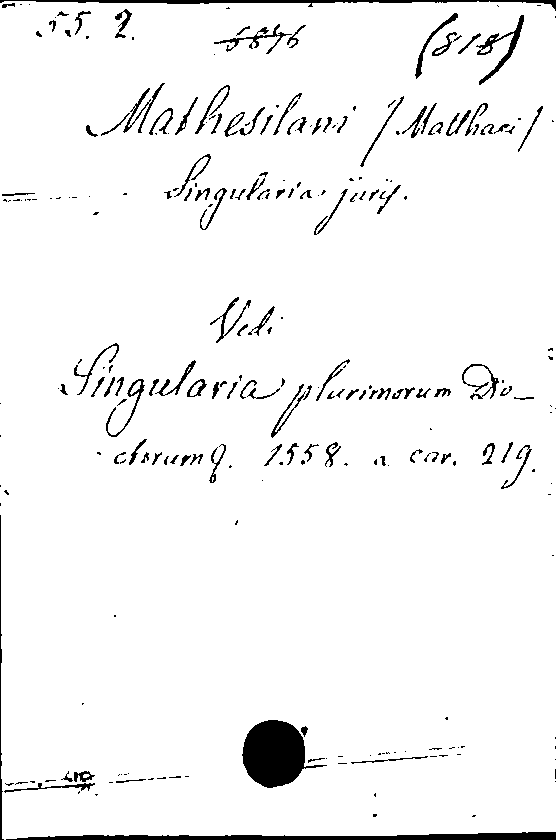 55. 2. 6876 (818)
Mathesilani / Matthaei /
Singularia juris.
Vedi
Singularia plurimorum Do-
ctorum. 1558. a car. 219.